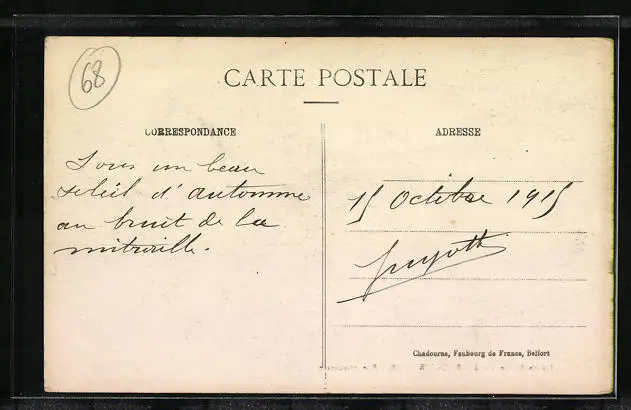 68
CARTE POSTALE
CORRESPONDANCE
ADRESSE
Sous un beau
soleil d'automne
au bruit de la
mitraille.
15 Octobre 1915
Chadourne, Faubourg de France, Belfort